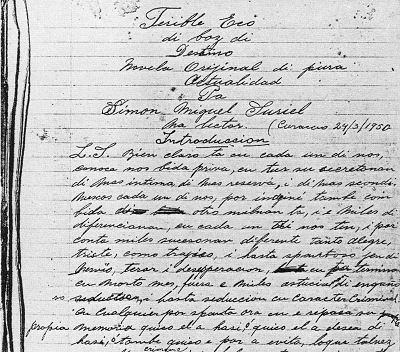 Terible Eco
di boz di
Destino
Novela Original di pura
Actualidad
Pa
Simon Miguel Suriel
Na lector. (Curacao 24/3/1950
Introduccion
L.S. Bien claro ta cu cada un di nos,
conoce nos bida priva, cu tur su secretonan
di mas intimo, di mas reserva, i di mas sconde.
Mescos cada un di nos, por imginá tambe con
bida di otro mihnan ta, i e miles di
diferencianan, cu cada un tei nos tin, i por
conta miles sucesonan diferente tanto alegre,
triste, como tragico, i hasta
teror i desesperacion, cu ta termina
cu morto mes, fuera e miles articial di engaño
i hasta seduccion cu Caracter Criminal
Cu cualquier por sparta ora cu e repasa su
propia memoria quico el a hasi, quico el a desea di
hasi, tambe quico e por a evita,